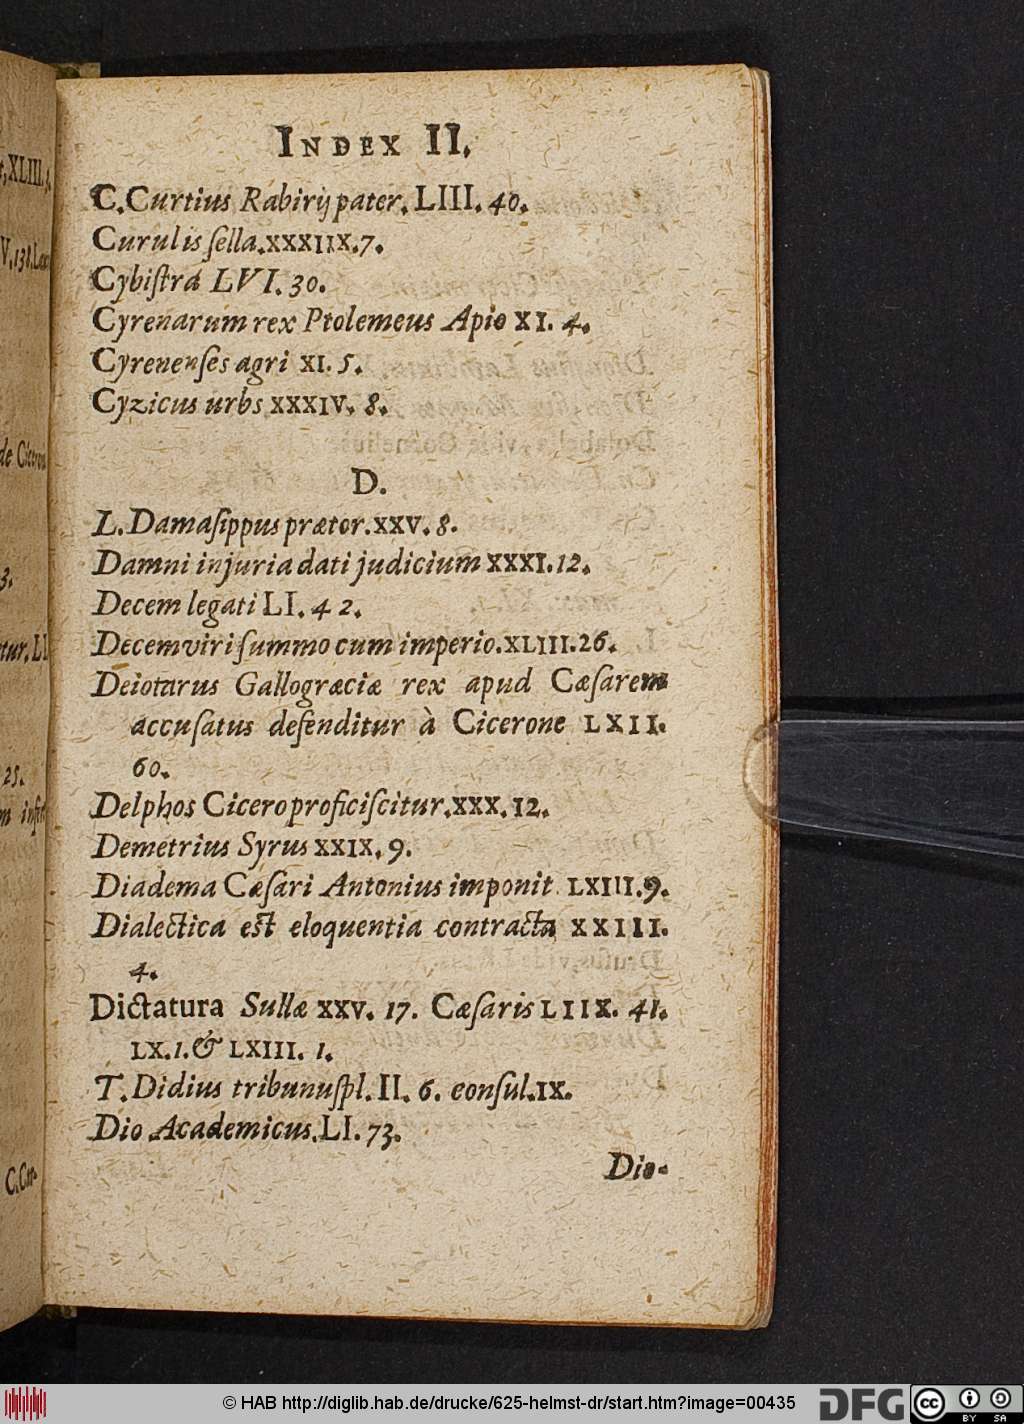 INDEX II.
C. Curtius Rabirij pater. LIII. 40.
Curulis ſella. XXXIIX. 7.
Cybiſtrá LVI. 30.
Cyrenarum rex Ptolemeus Apio XI. 4.
Cyrenenſes agri XI. 5.
Cyzicus urbs XXXIV. 8.
D.
L. Damaſippus prætor. XXV. 8.
Damni injuria dati judicium XXXI. 12.
Decem legati LI. 42.
Decemviri ſummo cum imperio. XLIII. 26.
Deiotarus Gallogræciæ rex apud Cæſarem
accuſatus defenditur à Cicerone LXII.
60.
Delphos Cicero proficiſcitur. XXX. 12.
Demetrius Syrus XXIX. 9.
Diadema Cæſari Antonius imponit LXIII. 9.
Dialectica eſt eloquentia contracta XXIII.
4.
Dictatura Sullæ XXV. 17. Cæſaris LIIX. 41.
LX. 1. & LXIII. 1.
T. Didius tribunuſpl. II. 6. eonſul. IX.
Dio Academicus. LI. 73.
Dio-
XLIII.
V. 138.
de
3.
tur. LI
25.
m
C. Cur-
© HAB http://diglib.hab.de/drucke/625-helmst-dr/start.htm?image=00435
DFG
cc
BY SA